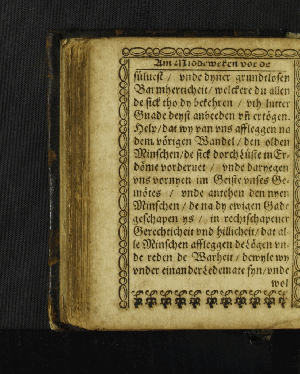 Am Middeweken vor de
sülvest / vnde dyner grundtlosen
Barmherticheit / welckere du allen
de sick tho dy bekehren / vth lutter
Gnade deyst anbeeden vñ ertögen.
Help / dat wy van vns affleggen na
dem vörigen Wandel / den olden
Minschen / de sick dorch Lüste in Er-
döme vorderuet / vnde daryegen
vns vornyen im Geiste vnses Ge-
mötes / vnde antehen den nyen
Minschen / de na dy ewigen Gade
geschapen ys / in rechtschapener
Gerechticheit vnd hillicheit / dat al-
le Minschen affleggen de Lögen vn-
de reden de Warheit / dewyle wy
vnder einander Ledemate syn / vnde
wol